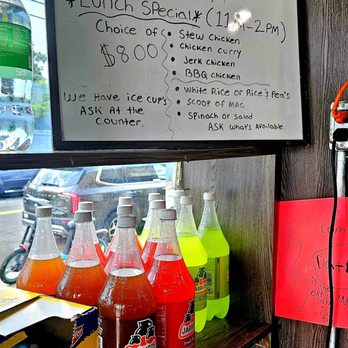 *Lunch Special* (11AM-2PM)
Choice of
$8.00
• Stew Chicken
• Chicken curry
• Jerk chicken
• BBQ chicken
• White Rice or Rice & Pea's
• Scoop of Mac
• Spinach or salad
ASK What's Available.
We Have ice cup's
ASK At the
Counter.